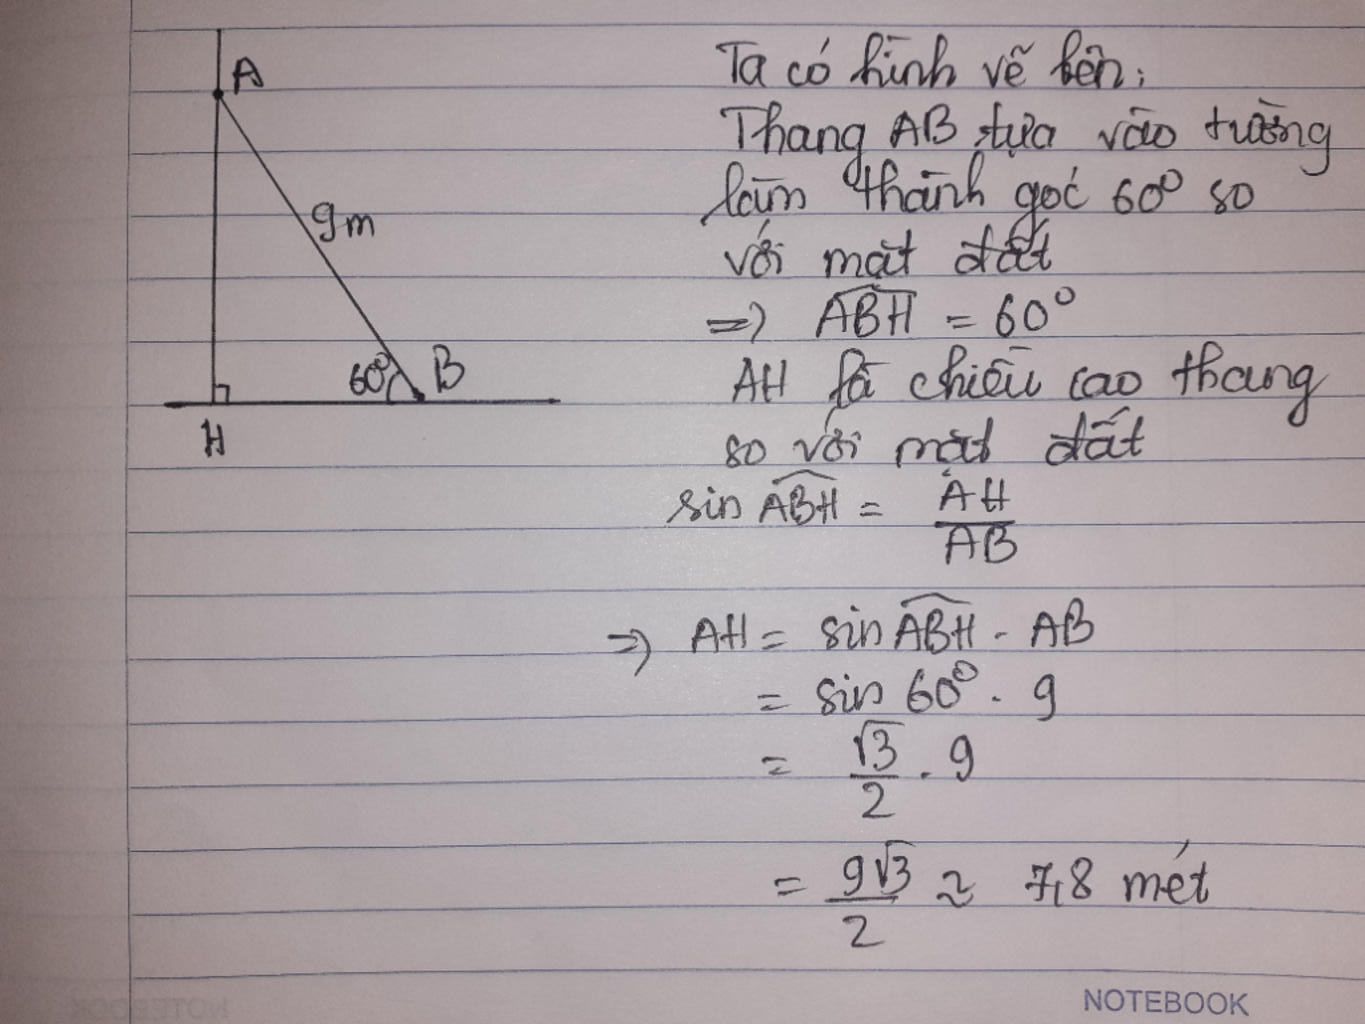 A
9m
60° B
H
Ta có hình vẽ bên:
Thang AB tựa vào tường
làm thành góc 60° so
với mặt đất
=> ABH = 60°
AH là chiều cao thang
so với mặt đất
sin ABH = AH/AB
=> AH = sin ABH . AB
= sin 60° . 9
= √3/2 . 9
= 9√3/2 ≈ 7,8 mét
NOTEBOOK